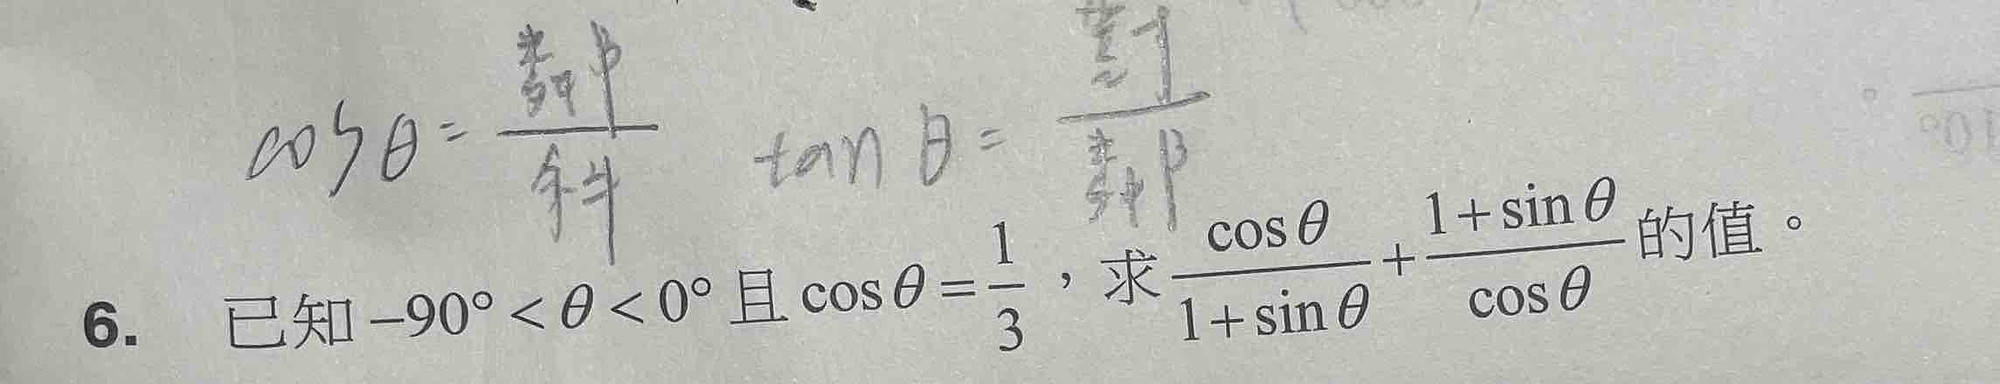 cosθ = 鄰/斜 tanθ = 對/鄰
6. 已知 –90° < θ < 0° 且 cosθ = 1/3，求 cosθ/(1+sinθ) + (1+sinθ)/cosθ 的值。